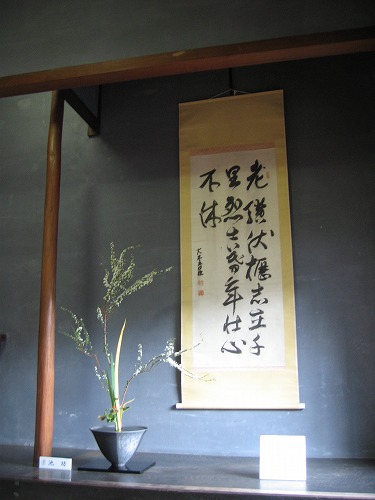 老驥伏櫪志在千
里烈士暮年壮心
不休
池坊